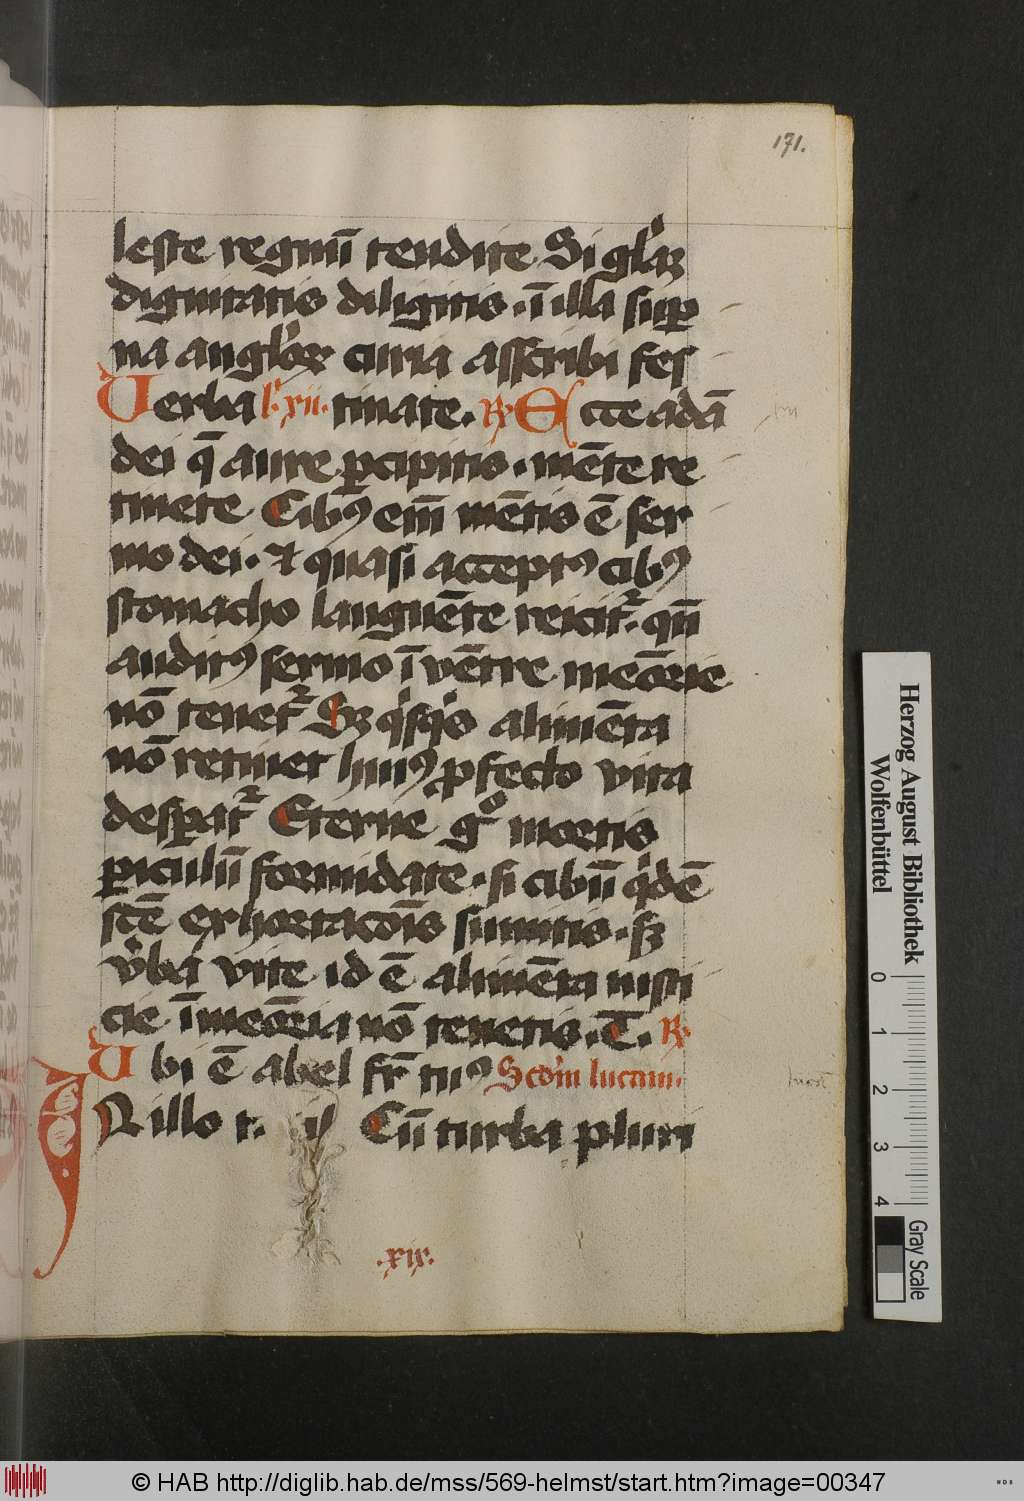 171.
leste regnū tendite Si glͦrē
dignitatis diligitis · ī illa suꝑ
na angloꝝ curia asscribi fes
Verba l xii · tinate . ℟ Ecce adā
dei q̄ aure ꝑcipitis · mēte re
tinete Cibꝰ eniī mētis ē ser
mo dei · ⁊ quasi acceptꝰ cibꝰ
stomacho languēte reicit᷑ · qn̄
auditꝰ sermo ī vētre meōrie
nō tenet᷑ Sꝫ qͥsqͥs alimēta
nō retinet huiꝰ ꝓfecto vita
despat᷑ Eterne gͦ mortis
ꝑiculū formidate · si cibū qͥdē
scē exhortacōis sumitis · sꝫ
v̾ba vite · id ē alimēta iusti
cie ī meōria nō tenetis . T . ℟
Ubi ē abel fr̄ tuꝰ Scdm lucam ·
IN illo t . il Cū turba pluri
· xix ·
Herzog August Bibliothek
Wolfenbüttel
0 1 2 3 4
Gray Scale
© HAB http://diglib.hab.de/mss/569-helmst/start.htm?image=00347